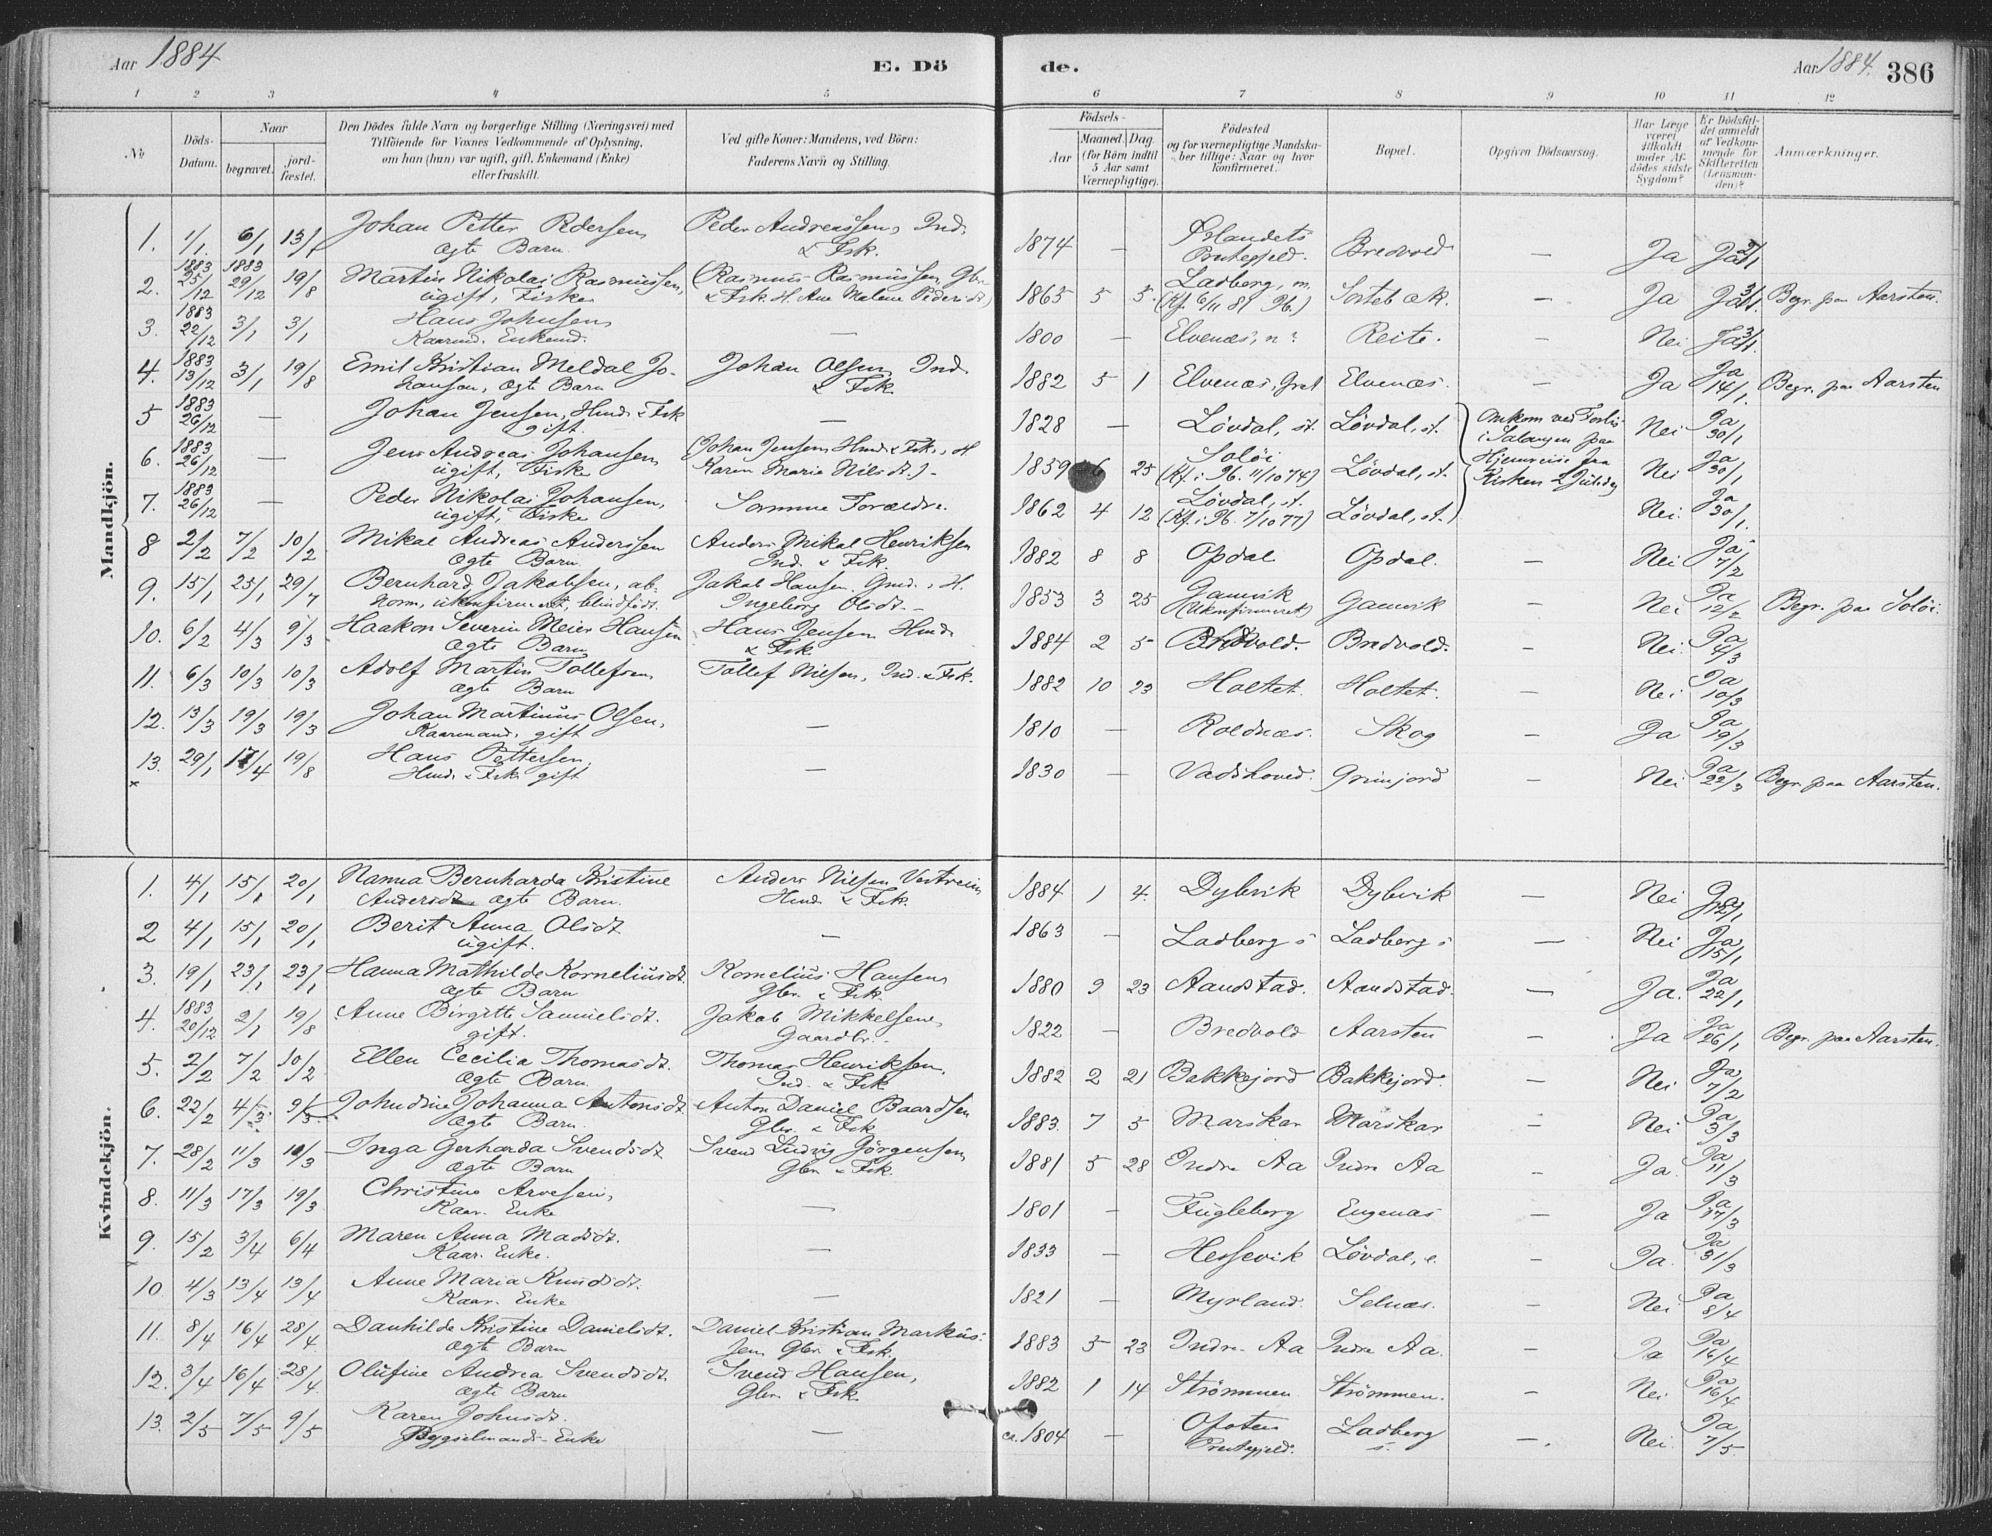 Aar 1884
E. Dö
de.
Aar 1884.
386
1 2 3 4 5 6 7 8 9 10 11 12
No
Döds-Datum.
Naar
begravet.
jord-fæstet.
Den Dödes fulde Navn og borgerlige Stilling (Næringsvei) med
Tilföiende for Voxnes Vedkommende af Oplysning,
om han (hun) var ugift, gift, Enkemand (Enke)
eller fraskilt.
Ved gifte Koner: Mandens, ved Börn:
Faderens Navn og Stilling.
Födsels-
Aar
Maaned. Dag.
(for Börn indtil
5 Aar samt
Værnepligtige).
Födested
og for værnepligtige Mandska-
ber tillige: Naar og hvor
konfirmeret.
Bopæl.
Opgiven Dödsaarsag.
Har Læge
været
tilkaldt
under Af-
dödes sidste
Sygdom?
Er Dödsfal-
det anmeldt
af Vedkom-
mende for
Skifteretten
(Lensman-
den)?
Anmærkninger.
Mandkjön.
1. 1/1. 6/1 13/1 Johan Petter Pedersen, Peder Andreassen, Ind.
ægte Barn. & Fsk.
1874 — Ørlandets Præstegjeld. Bredvold — Ja Ja 2/1
2. 1883 25/12 1883 29/12 19/8 Martin Nikolai Rasmussen, (Rasmus Rasmussen Gbr.
ugift, Fisker & Fsk. H. Ane Malene Pedersdt)
1865 5 5. Ladberg, m. (Kf. 6/11 81 Ib.) — Ja Ja 3/1 Begr. paa Aarsten.
3. 1883 22/12 3/1 3/1 Hans Johnsen, —
Kaarmd. Enkemd.
1800 — Elvenæs, n: Reite. — Nei Ja 3/1.
4. 1883 13/12 3/1 19/8 Emil Kristian Meldal Jo- Johan Olsen Ind.
hansen, ægte Barn & Fsk.
1882 5 1 Elvenæs, Grat. Elvenæs. — Ja Ja 14/1. Begr. paa Aarsten
5 1883 26/12 — Johan Jensen, Hmd. & Fsk —
gift.
1828 — Løvdal, st. Løvdal, st. Omkom ved Forlis Nei Ja 30/1
i Salangen paa
6. 1883 26/12 — Jens Andreas Johansen, (Johan Jensen, Hmd. & Fsk., H
ugift, Fisker Karen Maria Nilsdt.) -
1859 6 25 Soløi (Kf. i Ib. 11/10 74) Løvdal, st. Hjemreise fra Nei Ja 30/1
Kirken 2 Juledag
7. 1883 26/12 — Peder Nikolai Johansen, Samme Forældre.
ugift, Fisker
1862 4 12 Løvdal, st. (Kf. i Ib. 7/10 77) Løvdal, st. Nei. Ja 30/1.
8 2/2 7/2 10/2 Mikal Andreas Anderssen Anders Mikal Henriksen
ægte Barn. Ind. & Fsk.
1882 8 8 Opdal Opdal. — Nei Ja 7/2
9. 15/1 25/1 29/7 Bernhard Jakobsen, ab- Jakob Hansen, Gmd., H.
norm, ukonfirmeret, blindfødt. Ingeborg Olsdt. -
1853 3 25 Gamvik (Ukonfirmeret) Gamvik — Nei Ja 12/2 Begr. paa Soløi.
10. 6/2 4/3 9/3 Haakon Severin Meier Hansen Hans Jensen Hmd.
ægte Barn & Fsk.
1884 2 5 Bredvold. Bredvold. — Nei. Ja 4/3
11. 6/3 10/3 10/3 Adolf Martin Tollefsen, Tollef Nilsen, Ind. & Fsk.
ægte Barn
1882 10 23 Holtet. Holtet. — Nei. Ja 10/3
12. 13/3 19/3 19/3 Johan Martinus Olsen, —
Kaarmand, gift
1810 — Roldnæs. Skog — Ja Ja 19/3
13. 29/1 17/4 19/8 Hans Pettersen, —
Hmd. & Fsk. gift
1830 — Vadshoved. Grimjord — Nei Ja 22/3 Begr. paa Aarsten.
Kvindekjön.
1. 4/1 15/1 20/1 Nanna Bernharda Kristine Anders Nilsen Vestreim
Andersdt ægte Barn. Hmd. & Fsk.
1884 1 4. Dybvik Dybvik — Nei Ja 12/1
2 4/1 15/1 20/1 Berit Anna Olsdt —
ugift.
1863 — Ladberg s Ladberg s — Nei Ja 15/1
3. 19/1 23/1 23/1 Hanna Mathilde Korneliusdt. Kornelius Hansen,
ægte Barn Gbr. & Fsk.
1880 9 23 Aandstad. Aandstad. — Ja. Ja 22/1
4. 1883 20/12 2/1 19/8 Anne Birgitte Samuelsdt. Jakob Mikkelsen,
gift. Gaardbr. -
1822 — Bredvold Aarsten — Ja Ja 26/1 Begr. paa Aarsten.
5. 2/2 7/2 10/2 Ellen Cecilia Thomasdt. Thomas Henriksen,
ægte Barn. Ind. & Fsk
1882 2 21 Bakkejord Bakkejord. — Nei Ja 7/2
6. 22/2 4/3. 9/3. Johndine Johanna Antonsdt Anton Daniel Baardsen
ægte Barn. Gbr. & Fsk
1883. 7 5 Marskar Marskar — Nei Ja 3/3
7. 28/2 11/3 11/3 Inga Gerharda Svendsdt Svend Ludvig Jörgensen,
ægte Barn Gbr. & Fsk.
1881 5 28 Indre Aa Indre Aa — Ja. Ja 11/3
8. 11/3 17/3 19/3 Christine Arvesen, —
Kaar. Enke
1801 — Fugleberg Engenæs — Ja Ja 17/3
9. 15/2 3/4 6/4 Maren Anna Madsdt. —
Kaar. Enke.
1833 — Hessevik Løvdal, e. — Ja. Ja 31/3
10 4/3 13/4 13/4 Anne Maria Knudsdt. —
Kaar. Enke
1821 — Myrland. Selnæs. — Nei Ja 8/4
11. 8/4 16/4 28/4. Danhilde Kristine Danielsdt. Daniel Kristian Markus:
ægte Barn sen Gbr. & Fsk.
1883 5 23 Indre Aa Indre Aa. — Ja Ja 16/4
12. 3/4 16/4 28/4. Olufine Andrea Svendsdt. Svend Hansen,
ægte Barn Gbr. & Fsk.
1882 1 14 Strömmen Strömmen. — Nei Ja 16/4
13. 2/5 7/5 9/5 Karen Johnsdt. —
Bygselmands Enke
ca. 1804 — Ofoten Præstegjeld. Ladberg s. — Nei. Ja 7/5